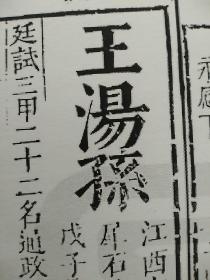 王湯孫
江西
石
戊子
廷試三甲二十二名通政